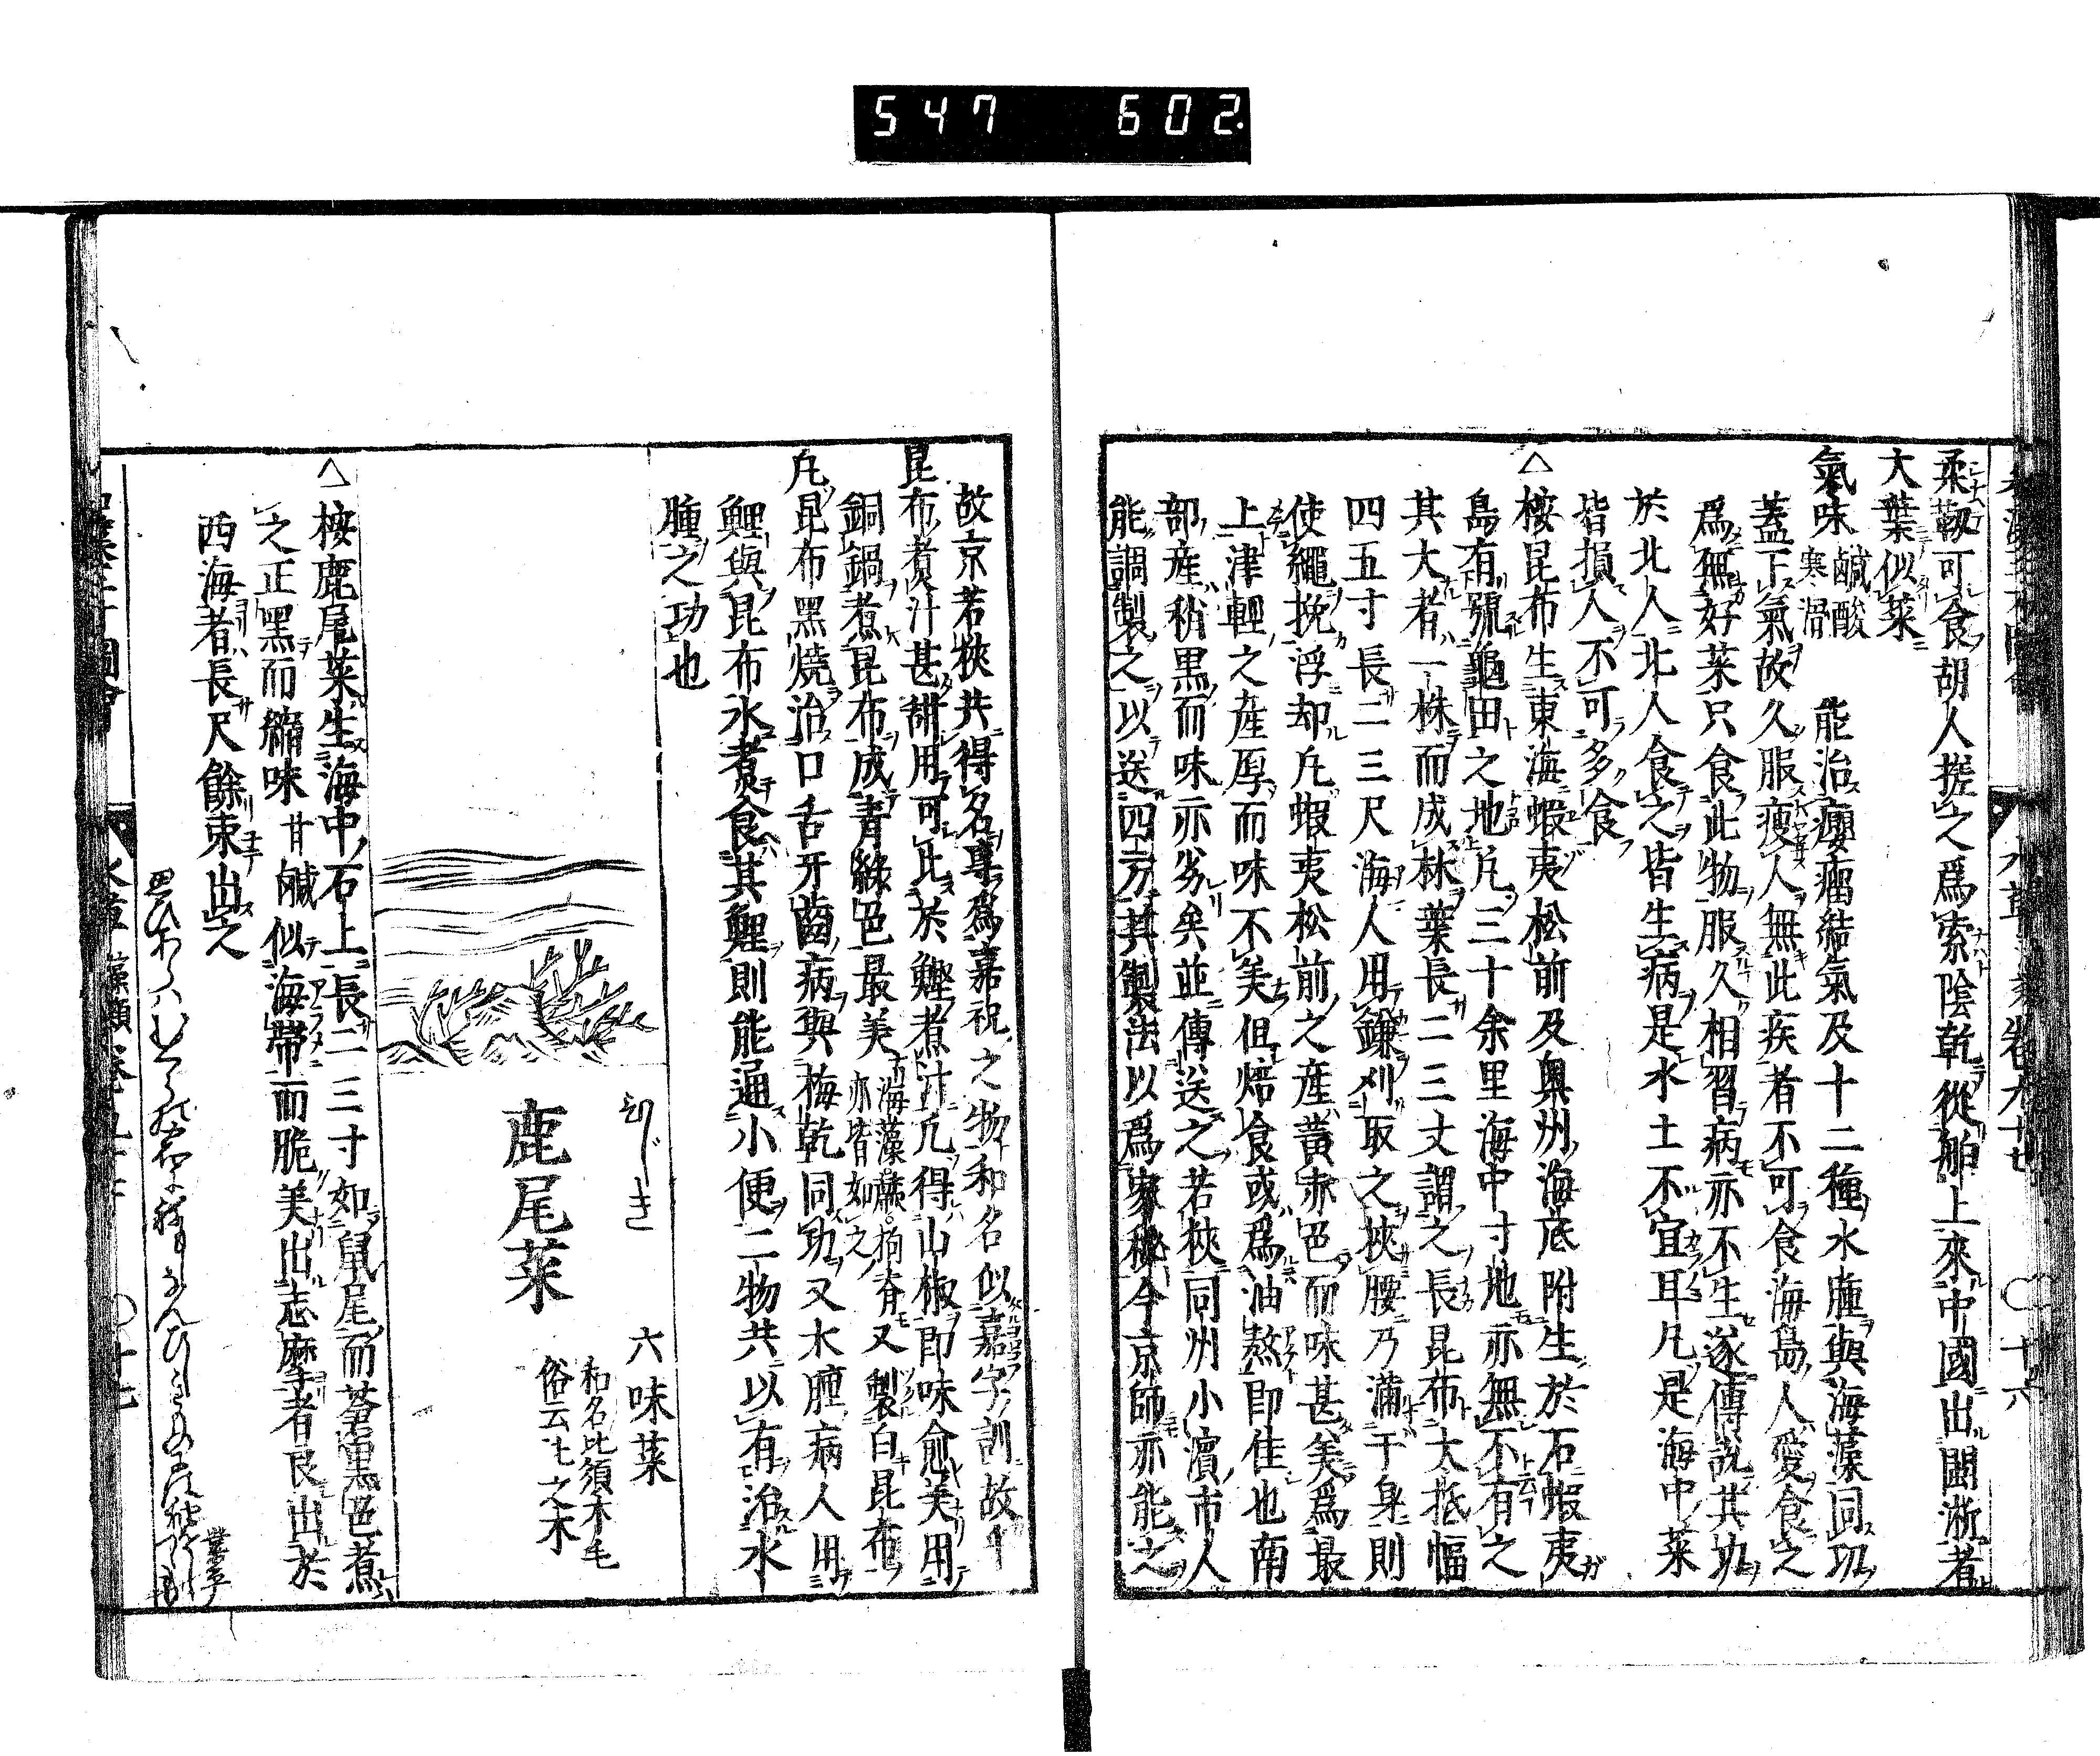 547 602.
柔靱可食胡人搓之爲索陰乾從舶上來中國出閩浙者
大葉似菜
氣味
鹹酸
寒滑
能治癭瘤結氣及十二種水腫與海藻同功
蓋下氣故久服瘦人無此疾者不可食海島人愛食之
爲無好菜只食此物服久相習病亦不生遂傳説其功
於北人北人食之皆生病是水土不宜耳凡是海中菜
皆損人不可多食
△桉昆布生東海蝦夷松前及奥州海底附生於石蝦夷
島有號龜田之地凡三十余里海中寸地亦無不有之
其大者一株而成林葉長二三丈謂之長昆布大抵幅
四五寸長二三尺海人用鎌刈取之挾腰乃滿于身則
使繩挽浮却凡蝦夷松前之産黃赤色而味甚美爲最
上津輕之産厚而味不美但焙食或爲油熬即佳也南
部産稍黒而味亦劣矣並傳送之若狹同州小濱市人
能調製之以送四方其製法以爲家秘今京師亦能之
故京若狹共得名專爲嘉祝之物和名似嘉字訓故
昆布煮汁甚甜用可比於鰹煮汁凡得山椒即味愈美用
銅鍋煮昆布成青綠色最美
海藻蕨狗脊
亦皆如之
又製白昆布
凡昆布黑燒治口舌牙齒病與梅乾同功又水腫病人用
鯉與昆布水煮食其鯉則能通小便二物共以有治水
腫之功也
ひじき
鹿尾菜
六味菜
和名比須木毛
俗云比之木
△桉鹿尾菜生海中石上長二三寸如鼠尾而蒼黒色煮
之正黑而縮味甘鹹似海帶而脆美出志摩者良出於
西海者長尺餘束出之
業平
水草 藻類